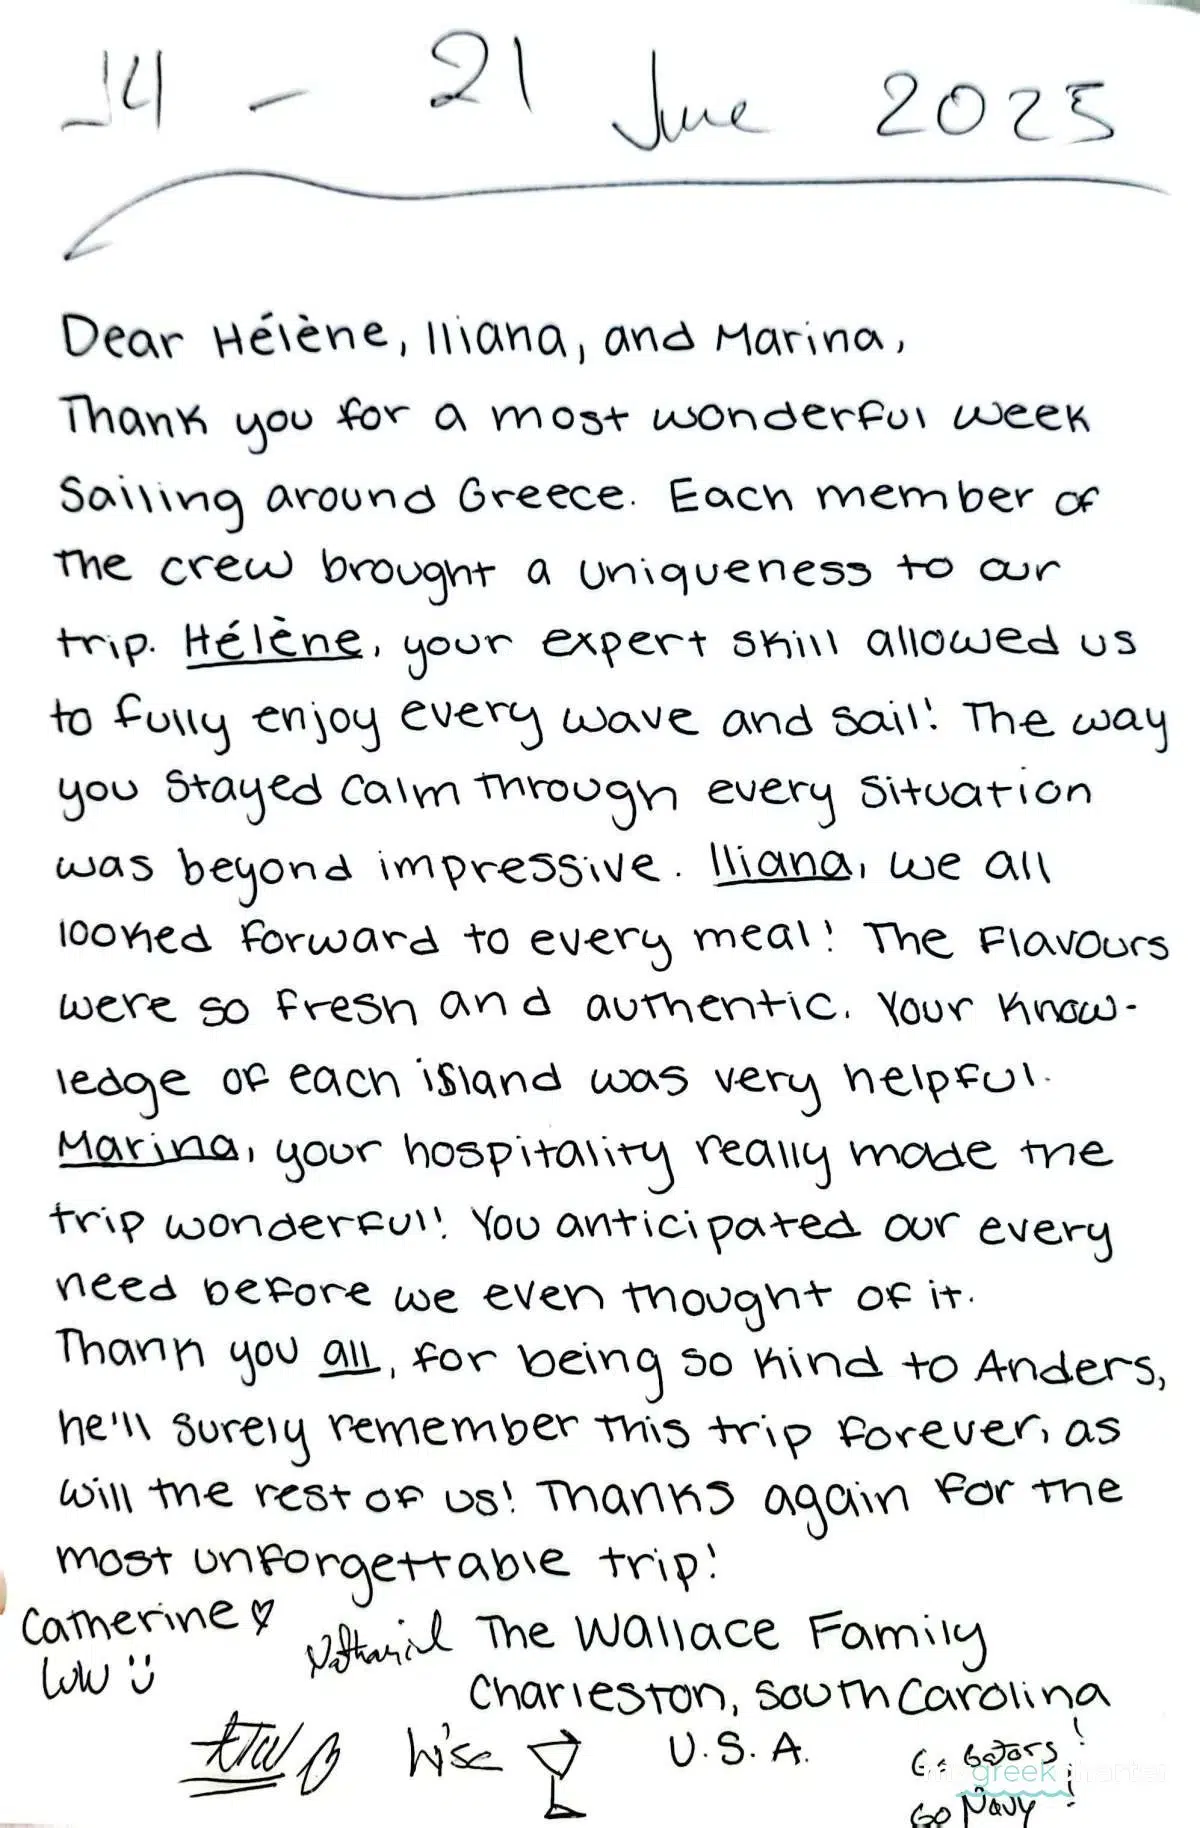 14 - 21 June 2025
Dear Hélène, Iliana, and Marina,
Thank you for a most wonderful week
Sailing around Greece. Each member of
the crew brought a uniqueness to our
trip. Hélène, your expert skill allowed us
to fully enjoy every wave and sail! The way
you stayed calm through every situation
was beyond impressive. Iliana, we all
looked forward to every meal! The Flavours
were so fresh and authentic. Your know-
ledge of each island was very helpful.
Marina, your hospitality really made the
trip wonderful! You anticipated our every
need before we even thought of it.
Thank you all, for being so kind to Anders,
he'll surely remember this trip forever, as
will the rest of us! Thanks again for the
most unforgettable trip!
Catherine
Nathaniel The Wallace Family
Charleston, South Carolina
U.S.A.
Go Gators!
greek charter
Go Navy!